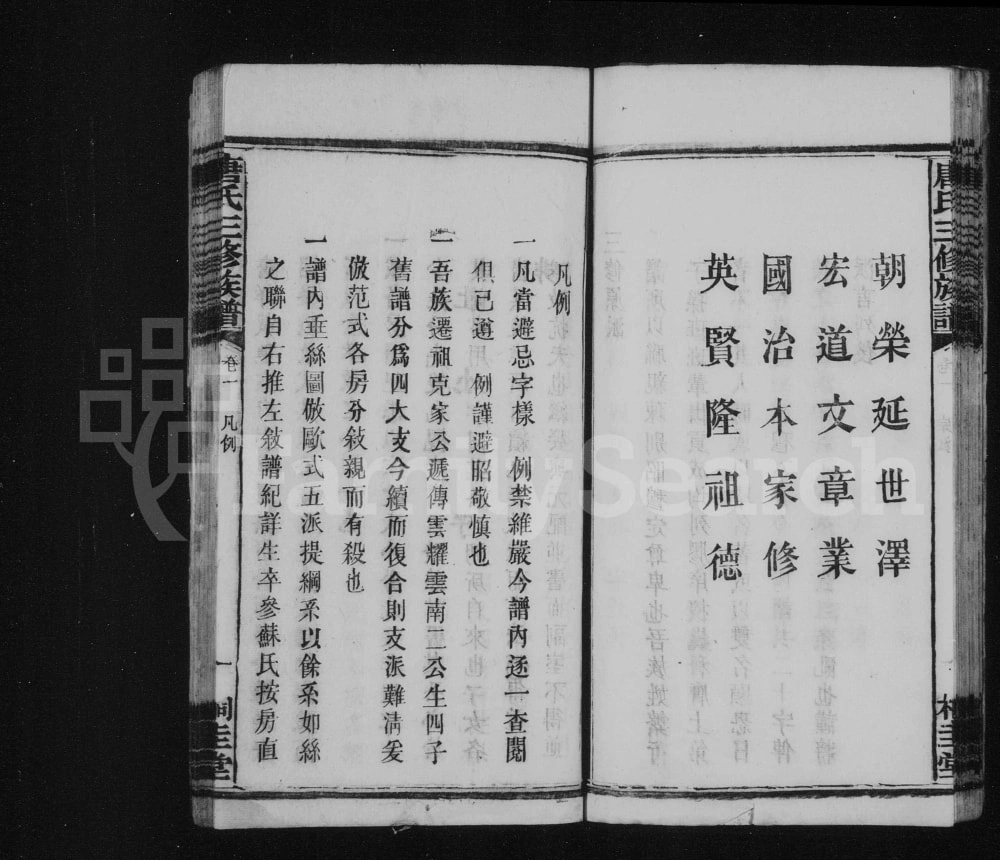 朝榮延世澤
宏道文章業
國治本家修
英賢隆祖德
凡例
一凡當避忌字樣 例禁維嚴今譜內逐一查閱
但已遵 例謹避昭敬慎也
一吾族遷祖克家公遞傳雲耀雲南二公生四子
舊譜分爲四大支今續而復合則支派難淸爰
倣范式各房分敘親而有殺也
一譜內垂絲圖倣歐式五派提綱系以餘系如絲
之聯自右推左敘譜紀詳生卒參蘇氏按房直
唐氏三修族譜
卷一 凡例
一
桐圭堂
FamilySearch